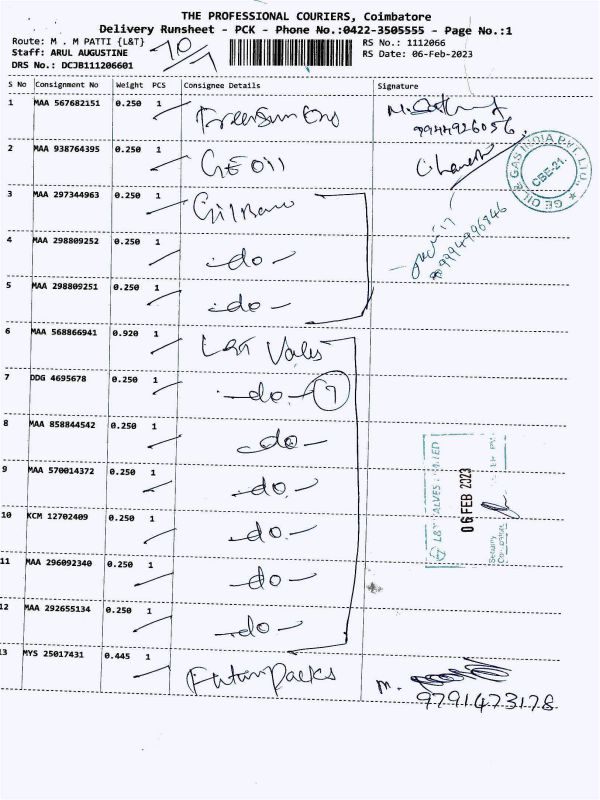 THE PROFESSIONAL COURIERS, Coimbatore
Delivery Runsheet - PCK - Phone No.:0422-3505555 - Page No.:1
Route: M . M PATTI {L&T}
RS No.: 1112066
Staff: ARUL AUGUSTINE
RS Date: 06-Feb-2023
DRS No.: DCJB111206601
S No Consignment No Weight PCS Consignee Details Signature
1 MAA 567682151 0.250 1
9944926056
2 MAA 938764395 0.250 1 GE Oil
GE OIL & GAS INDIA PVT. LTD.
CBE-21.
3 MAA 297344963 0.250 1
9994996946
4 MAA 298809252 0.250 1 -do-
5 MAA 298809251 0.250 1 -do-
6 MAA 568866941 0.920 1 L&T Valves
7 DDG 4695678 0.250 1 -do- 7
8 MAA 858844542 0.250 1 -do-
9 MAA 570014372 0.250 1 -do-
L&T VALVES LIMITED
06 FEB 2023
10 KCM 12702409 0.250 1 -do-
11 MAA 296092340 0.250 1 -do-
12 MAA 292655134 0.250 1 -do-
13 MYS 25017431 0.445 1 Futurpacks
M.
9791473178